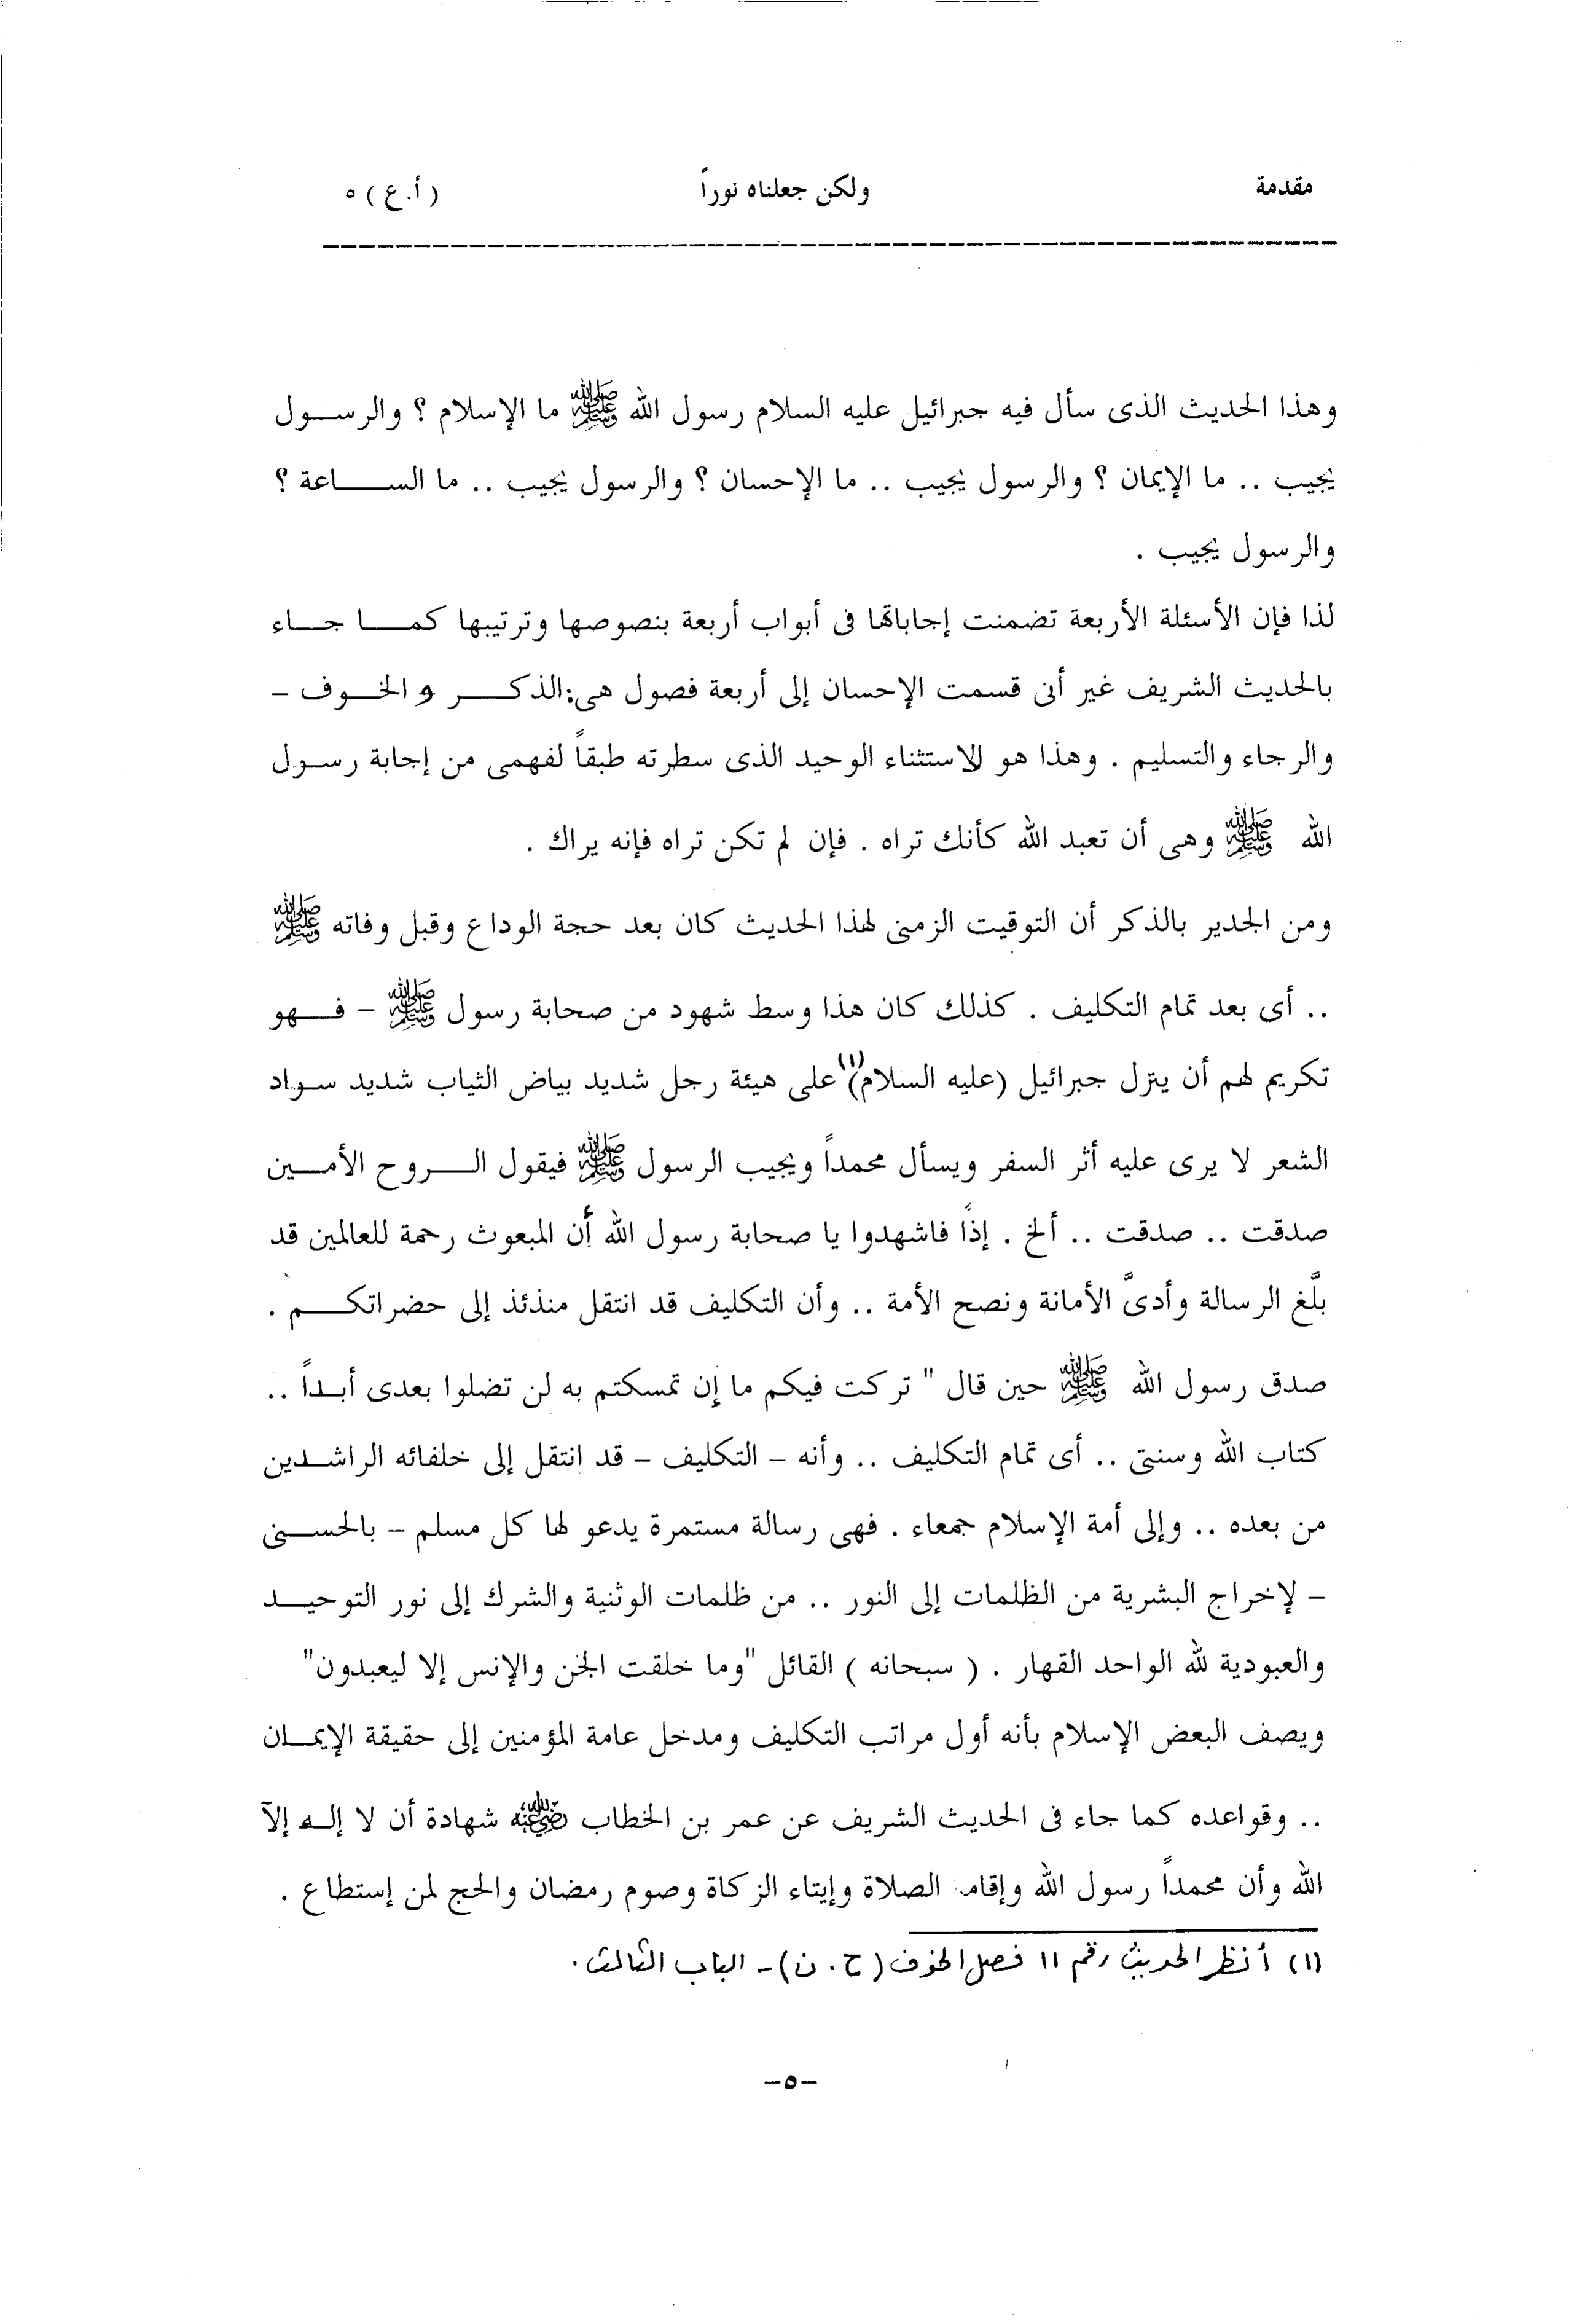 مقدمة ولكن جعلناه نوراً ( أ.ع ) ٥
وهذا الحديث الذى سأل فيه جبرائيل عليه السلام رسول الله ﷺ ما الإسلام ؟ والرسول
يجيب .. ما الإيمان ؟ والرسول يجيب .. ما الإحسان ؟ والرسول يجيب .. ما الساعة ؟
والرسول يجيب .
لذا فإن الأسئلة الأربعة تضمنت إجاباتها فى أبواب أربعة بنصوصها وترتيبها كما جاء
بالحديث الشريف غير أنى قسمت الإحسان إلى أربعة فصول هى: الذكر والخوف –
والرجاء والتسليم . وهذا هو الاستثناء الوحيد الذى سطرته طبقاً لفهمى من إجابة رسول
الله ﷺ وهى أن تعبد الله كأنك تراه . فإن لم تكن تراه فإنه يراك .
ومن الجدير بالذكر أن التوقيت الزمنى لهذا الحديث كان بعد حجة الوداع وقبل وفاته ﷺ
.. أى بعد تمام التكليف . كذلك كان هذا وسط شهود من صحابة رسول ﷺ – فهو
تكريم لهم أن ينزل جبرائيل (عليه السلام)(١) على هيئة رجل شديد بياض الثياب شديد سواد
الشعر لا يرى عليه أثر السفر ويسأل محمداً ويجيب الرسول ﷺ فيقول الروح الأمين
صدقت .. صدقت .. ألخ . إذاً فاشهدوا يا صحابة رسول الله أن المبعوث رحمة للعالمين قد
بلَّغ الرسالة وأدىَّ الأمانة ونصح الأمة .. وأن التكليف قد انتقل منذئذ إلى حضراتكم .
صدق رسول الله ﷺ حين قال " تركت فيكم ما إن تمسكتم به لن تضلوا بعدى أبداً ..
كتاب الله وسنتى .. أى تمام التكليف .. وأنه – التكليف – قد انتقل إلى خلفائه الراشدين
من بعده .. وإلى أمة الإسلام جمعاء . فهى رسالة مستمرة يدعو لها كل مسلم – بالحسنى
– لإخراج البشرية من الظلمات إلى النور .. من ظلمات الوثنية والشرك إلى نور التوحيد
والعبودية لله الواحد القهار . ( سبحانه ) القائل "وما خلقت الجن والإنس إلا ليعبدون"
ويصف البعض الإسلام بأنه أول مراتب التكليف ومدخل عامة المؤمنين إلى حقيقة الإيمان
.. وقواعده كما جاء فى الحديث الشريف عن عمر بن الخطاب رضي الله عنه شهادة أن لا إله إلآ
الله وأن محمداً رسول الله وإقامة الصلاة وإيتاء الزكاة وصوم رمضان والحج لمن إستطاع .
(١) أنظر الحديث رقم ١١ فصل الخوف (ح . ن) – الباب الثالث .
–٥–